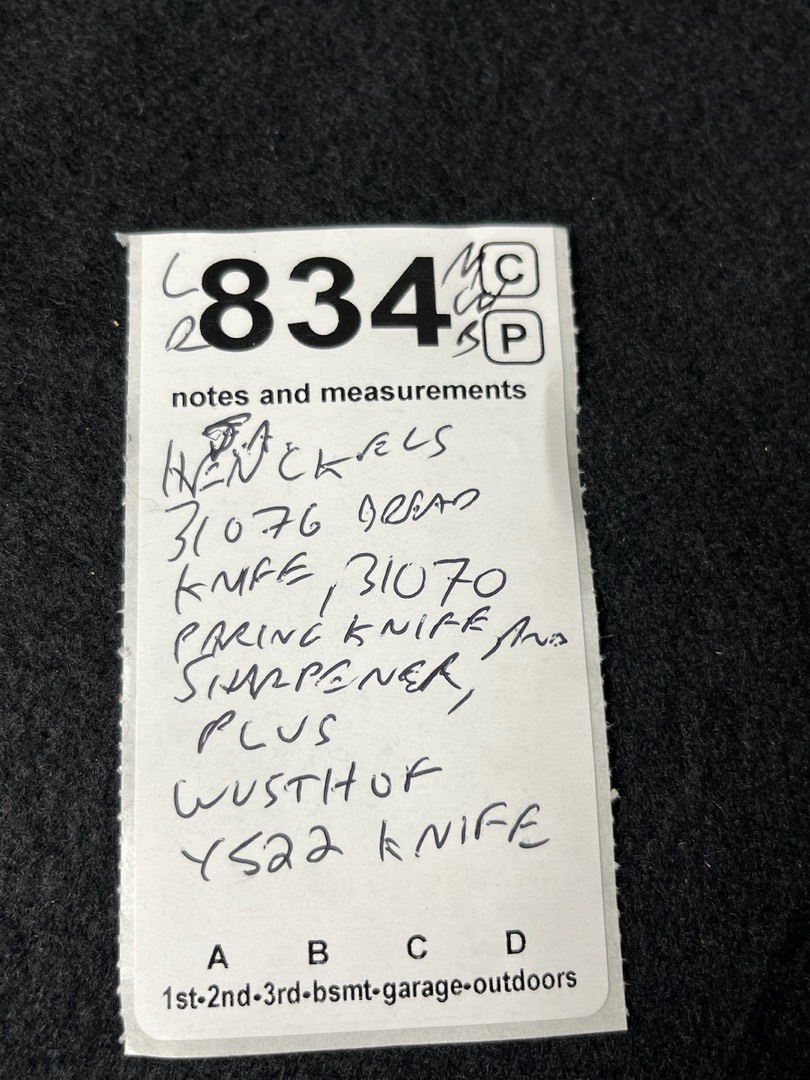 L 834 C
R P
notes and measurements
HENCKELS
31076 BREAD
KNIFE, 31070
PARING KNIFE, AND
SHARPENER,
PLUS
WUSTHOF
4522 KNIFE
A B C D
1st•2nd•3rd•bsmt•garage•outdoors